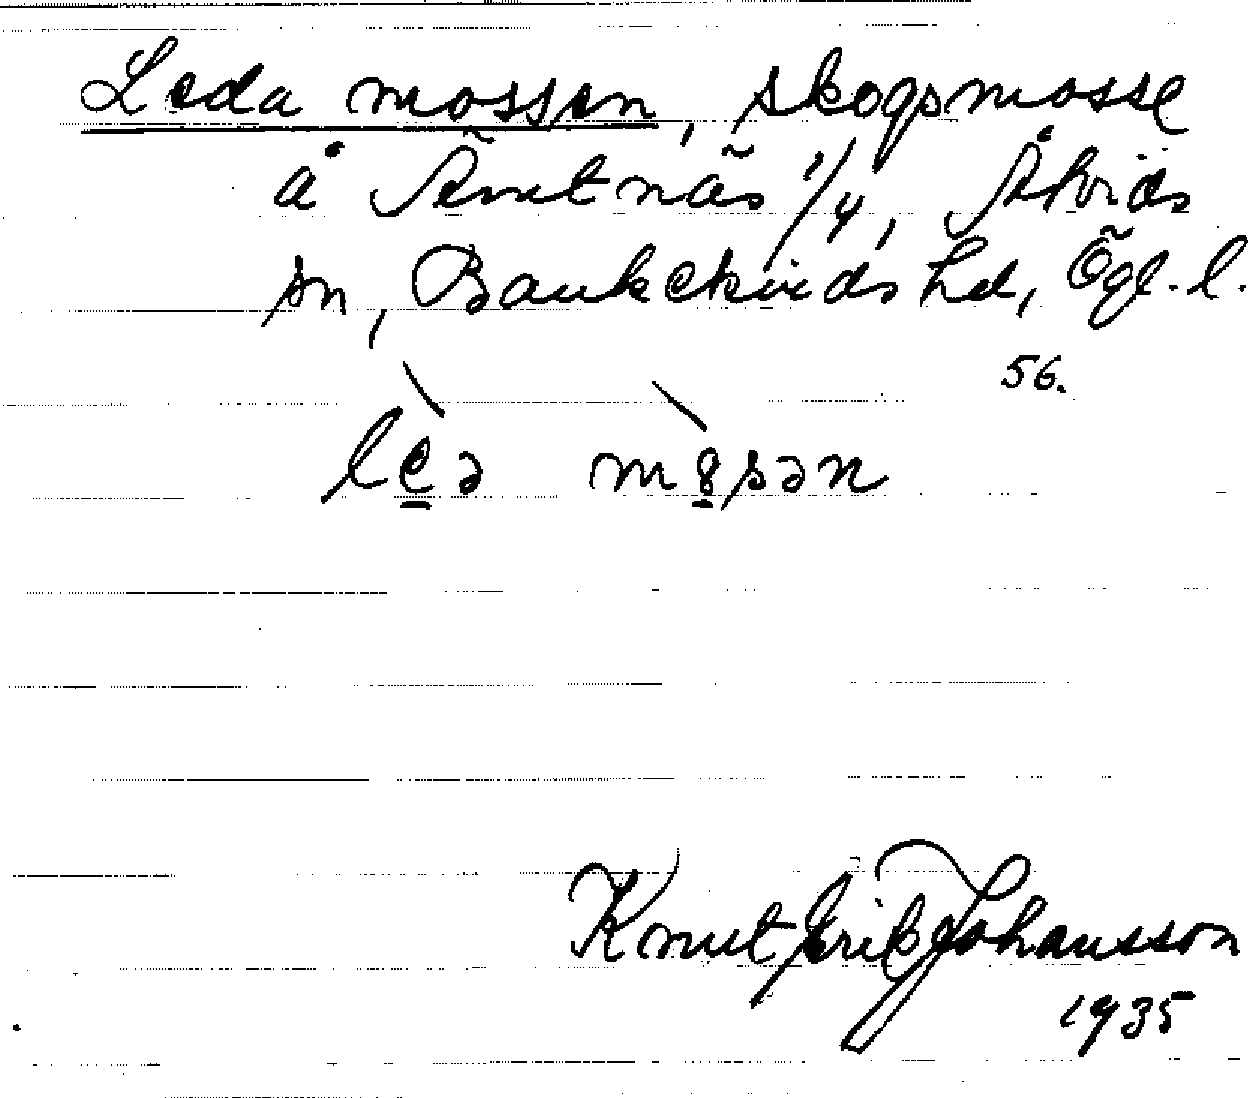 Leda mossen, skogsmosse
å Ämtnäs 1/4, Åsvids
sn, Bankekinds hd, Ögl. l.
56.
leə m8sən
Knut Erik Johansson
1935